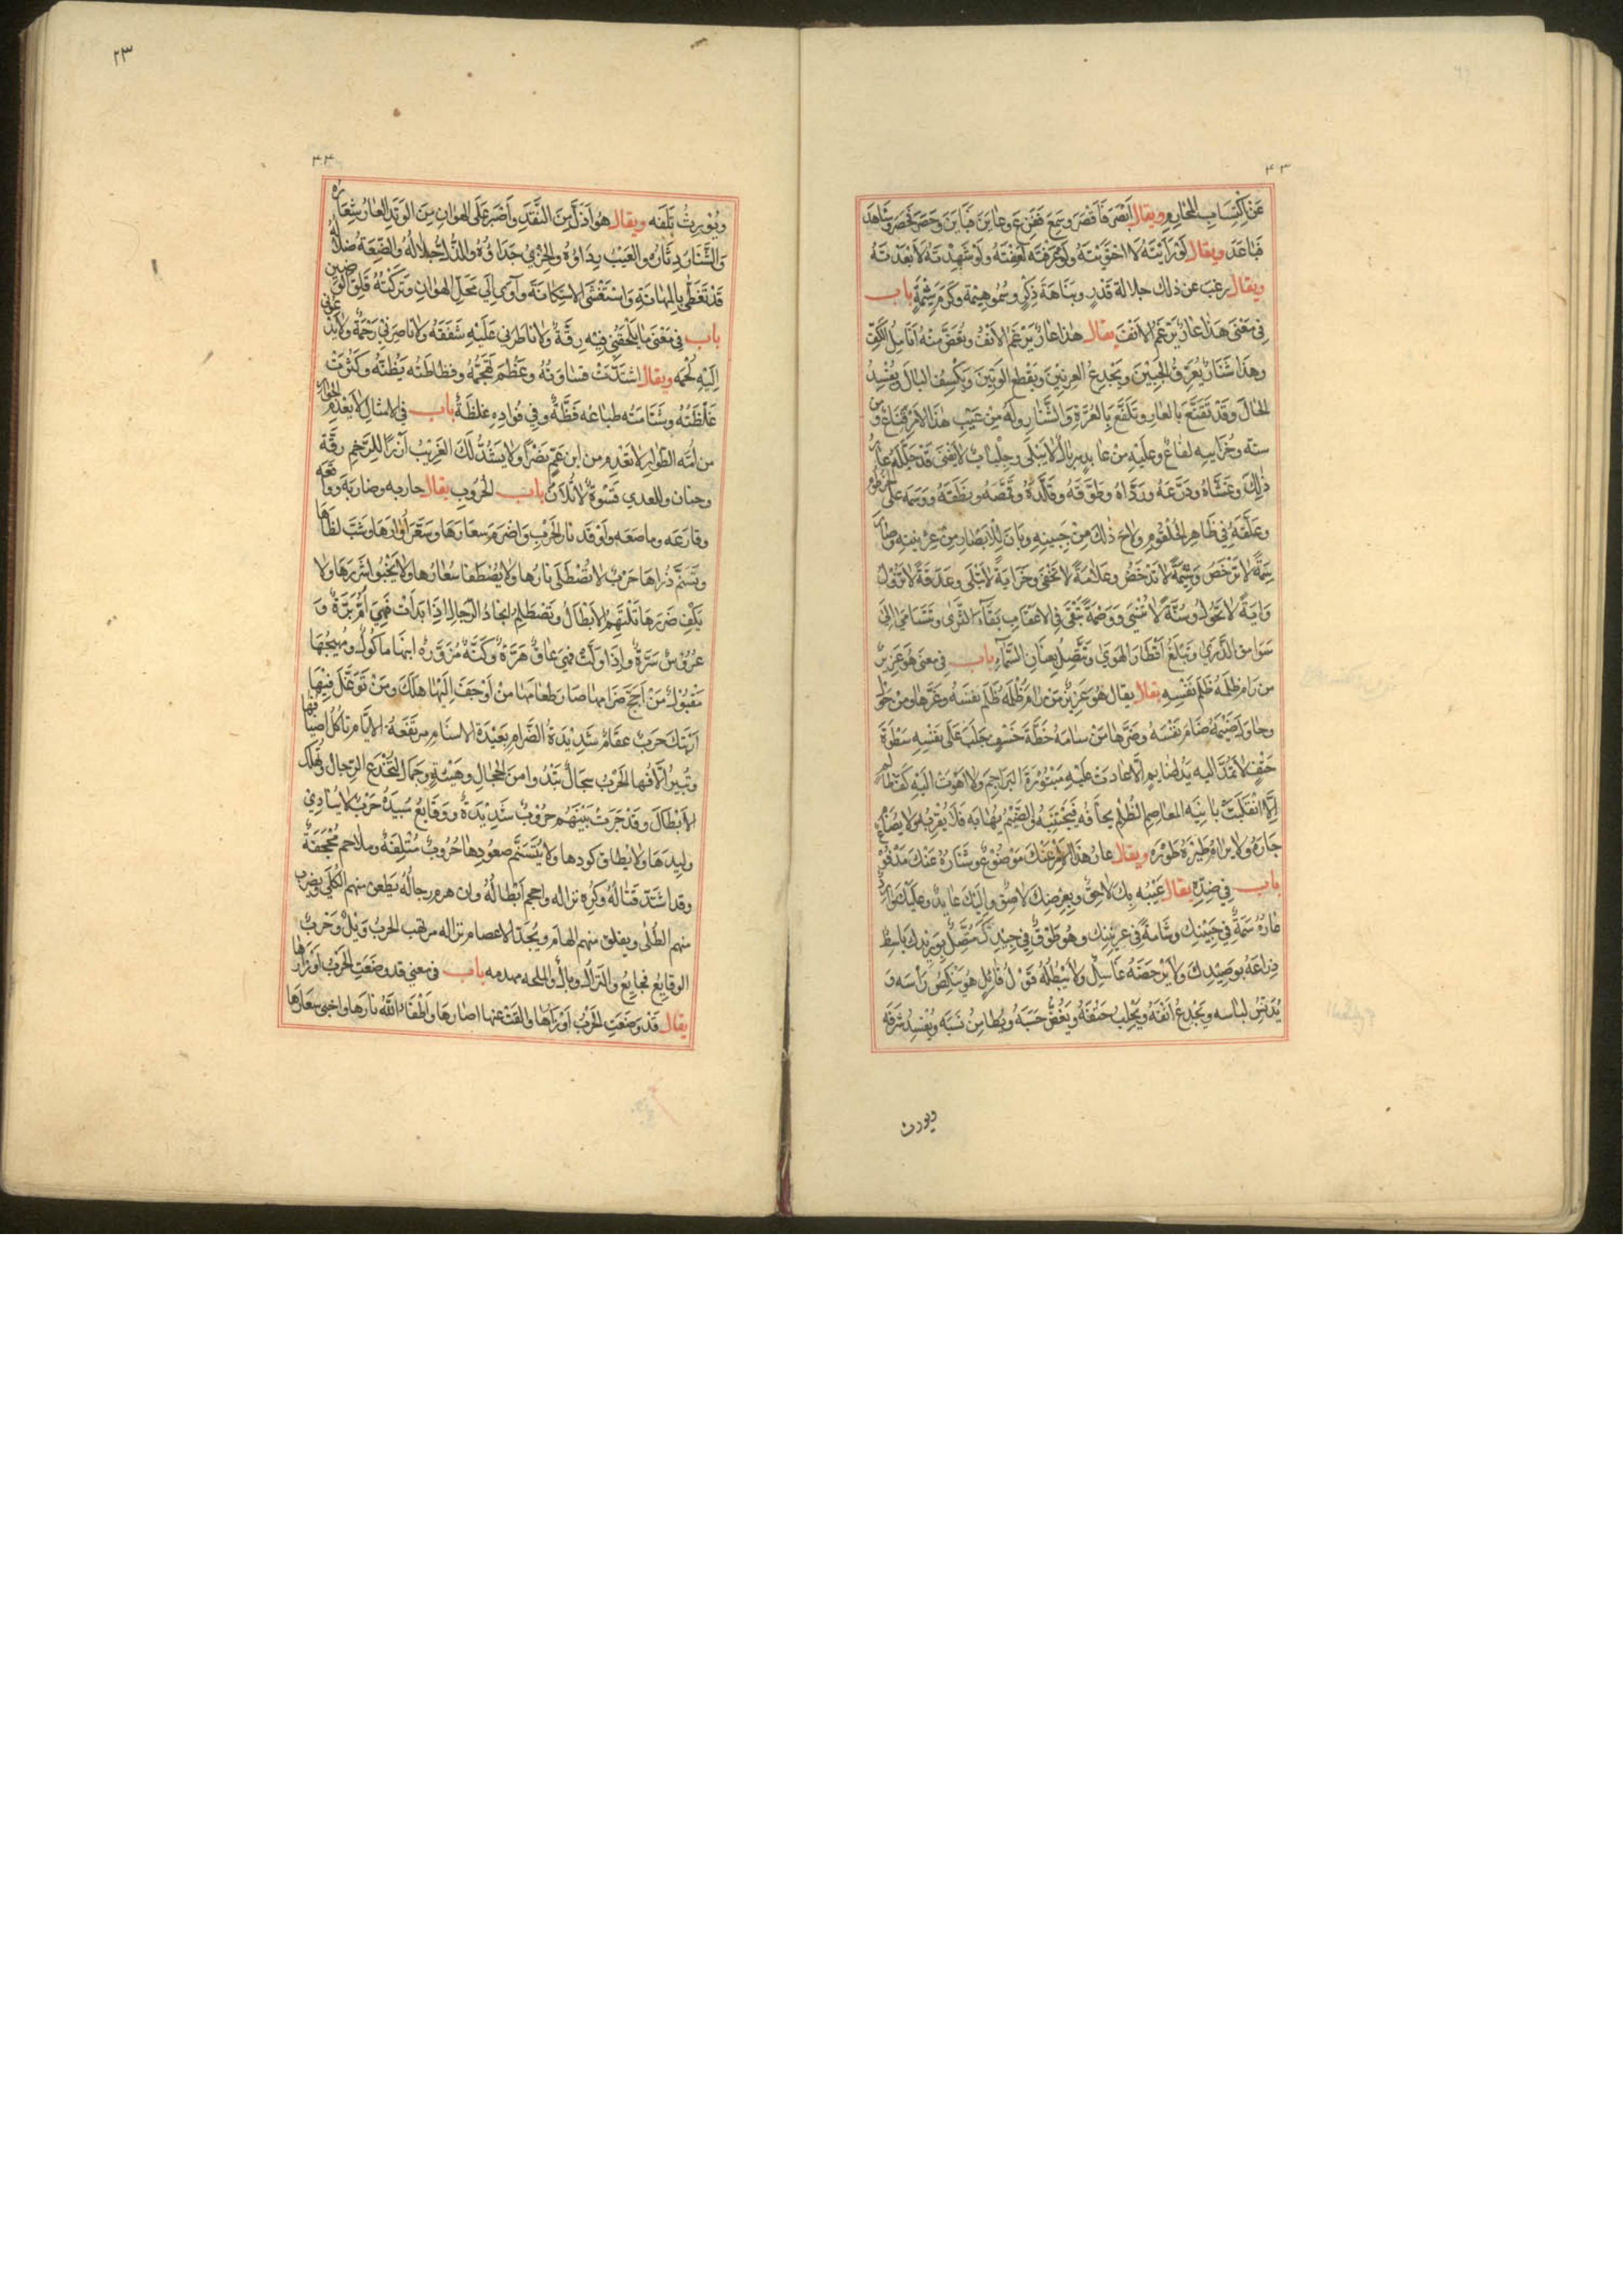 ٤٣
عَنْ اِكْتِسَابِ المحَارِمِ ويقال اَبْصَرَ فَاَقْصَرَ وسَمِعَ فَفَزِعَ وعايَنَ فَبايَنَ وحَضَرَ فحصر وشاهَدَ
فَباعَدَ ويقال لَوْ رَاَيْتَهُ لاحْقَرْتَهُ ولَوْ عَرَفْتَه لَعِفْتَهُ ولَوْ شَهِدْتَهُ لاَبْعَدْتَهُ
ويقال يرغب عن ذلك جلالة قَدْرٍ ونَبَاهَةَ ذِكْرٍ وسُمُوَّ هِمَّة وكَرَمَ شِيْمَةٍ باب
فى مَعْنَى هَذا عارٌ يَرْغَمُ الانْفَ يقال هٰذا عارٌ يَرْغَمُ الاَنْفُ ويُعَضُّ مِنْهُ اَنَامِلُ الكَفِّ
وهَذا شَنَارٌ يُعَرِّقُ الجَبِيْنَ ويَجْدَعُ العِرنِيْنَ ويَقْطَع الوَتِيْنَ ويَكْسِفُ البَالَ ويُفْسِدُ
الحَالَ وقَدْ تَقَنَّعَ بِالعَارِ وتَلَفَّعَ بِالعُرَّةِ والشَّنَارِ ولَهُ مِنْ عَيْبِ هٰذا الاَمْرِ قِنَاعٌ ومن
وخزايه لفاعٌ وعلَيْهِ مِنْ عارِه سِربَالٌ لا يَبْلَى وجِلْبابٌ لا يَفْنَى قَدْ جَلَّلَهُ عارُ
ذٰلِكَ وغَشَّاهُ ودَرَّعَهُ ورَدَّاهُ وطَوَّقَهُ وقَلَّدَهُ وقَمَّصَهُ ووَسَمَه على الخرطوم
وعَلَّقَهُ فِي ظَاهِرِ الحُلْقُومِ ولاحَ ذٰلِكَ مِنْ جَبِينِهِ وبَانَ لِلْاَبْصَارِ مِنْ عِرْنِينِهِ
سِمَةً لا تَرْحَضُ ووَشْمَةً لا تَدْحَضُ وعَلامَةً لا تَخْفَى وخَزَايَةً لا تَبْلَى
لا تَحُولُ وسُنَّةً لا تُنْسَى ووَصْمَةً تَبْقَى فِى الاعْقابِ بَقَآءَ وتَتَسَامَى اِلَى
وتَبْلُغُ اَقْطَارَ الهَوَى وتَتَّصِلُ بِعَنَانِ السَّمَآءِ باب فِى معنى هُوَ عَزِيزٌ
من رَامَ ظلمَهُ ظَلَمَ نَفْسَهِ يقال هُوَ عَزِيزٌ مَنْ رَامَ ظُلْمَهُ ظَلَمَ نفسَهُ
وحاوَلَ ضَيْمَهُ ضَامَ نَفْسَهُ وضَرَّها مَنْ سامَهُ خُطَّةَ خَسْفٍ جَلَبَ عَلَى نَفْسِهِ سَطْوَةَ
حَتْفٍ لا تَمْتَدُّ اليه يَدٌ لِضَايِمٍ اِلَّا عادَتْ عَلَيْهِ مَبْتُوْرَةَ البَرَاجِمِ ولا اهْوَتْ اليْهِ كَفُّ
اِلَّا انْقَلَبَتْ المعاصِم الظُّلْمُ يخافُهُ فَيَجْتَنِبُهُ والضَّيْمُ يَهَابُهُ فَلا يَقْرَبُهُ ولا يُضَامُ
جَارُهُ ولا يرامُ ويقال عارُ هٰذا الاَمْرِ عَنْكَ مَوضُوْعٌ وشَنَارُهُ عَنْكَ مَدْفُوعٌ
باب فِي ضِدِّه يقال عَيْبُهُ بِكَ لاحِقٌ وبِعِرْضِكَ لاصِقٌ واِلَيْكَ عايدٌ وعلَيْكَ
عارُهُ سِمَةٌ فِي جَبِيْنِكَ وشَامَةٌ فِي عِرنِيْنِكَ وهُوَ طَوْقٌ فِي جِيْدِكَ مُتَّصِلٌ بِوَرِيْدِكَ بَاسِطٌ
ذِرَاعَهُ بِوَصِيْدِكَ ولا يَرْحَضُهُ غَاسِلٌ ولا يُبْطِلُهُ قَوْلُ قَائِلٍ هُوَ يُنَكِّصُ رَأْسَه وَ
يُدَنِّسُ لباسه ويَجْدَعُ اَنْفَهُ ويَجْلِبُ حَتْفَهُ ويَغُضُّ حَسَبَهُ ويُطامِنُ نَسَبَه ويُفْسِدُ شَرَفَه
ويورث
٢٣
٤٤
ويُوْرِثُ تَلَفَه ويقال هُوَ اَذَلُّ مِنَ النَّقَدِ واَصْبَرُ عَلَى الهوانِ مِنَ الوَتِدِ العارُ شِعَارُه
والشَّنَارُ دِثَارُه والعَيْبُ رِدَاؤُهُ والخِزْيُ حِذَاؤُهُ والذُّلُّ جُلالُهُ والضِّعَةُ
قَدْ تَغَطَّى بِالمَهانَةِ واسْتَغْشَى الاسْتِكَانَةَ وآوى اِلَى مَحَلِّ الهوانِ وتَرَكْتُهُ قَلِقَ
باب فى مَعْنَى ما يَلْحَقُنِي فِيْهِ رِقَّةٌ ولا ناطَرنى عَلَيْهِ شَفَقَهٌ ولا ناصَرَنِي رَحْمَةٌ
اِلَيْهِ لُحْمَه ويقال اشْتَدَّتْ قسَاوَتُهُ وعَظُمَ تَجَهُّمُهُ وفظاظَتُه وكَثُرَتْ
غَلْظَتُهُ وشَتَامَتُه طباعُه فَظَّةٌ وفِي فُؤادِهِ غِلظَةٌ باب فى الامثال لا يَعْدَمُ الحُوَارُ
من اُمِّه لا تَعْدَم من ابنِ عَمٍّ نَصْراً ولا يَشُدُّ لَكَ الغَرِيْبُ اَزْراً لِلرَّحْمِ رِقَّة
وحنان وللعدى قَسْوَةٌ باب الحُرُوبِ يقال حاربه وضارَبَه وواقعه
وقارَعَه وماصَعَه واَوْقَد نارَ الحَرْبِ واَضْرَمَ سعَارَهَا وسَعَّرَ اُوَارَهَا وشَبَّ لظاها
وتَسَنَّمَ ذُراهَا حَرْبٌ لا تُصْطَلَى نارُهَا ولا يُصْطَفا سُعَارُها ولا يَخْبُوا شَرَرُهَا ولا
يُكْفِ ضَرَرُها تَلْتَهِمُ الاَبْطَالُ وتَصْطَلِمُ انجادُ الرّجالِ اِذَا بَدَاَتْ فَهِيَ اُمٌّ بَرَّةٌ وَ
عَرُوسٌ سَرَّةٌ واِذَا وَلَّتْ فَهِيَ عاقٌّ هَرَّةٌ وكَنَّةٌ مُزَوَّرَةٌ ابنُهَا مَاكُولٌ ومُهِيْجُهَا
مَقْبُوْلٌ مَنْ اَجَّجَ ضرَامها صَارَ طعامَها مَنْ اَوْجَفَ اِلَيْهَا هَلَكَ ومَنْ تَوَغَّلَ فِيْهَا
انْهَتَكَ حَرْبٌ عقَامٌ شَدِيْدَةُ الضِّرَامِ بَعِيْدَةُ الاسنَامِ الايّام تَاكُلُ
وتُبِيرُ الحَرْبُ سِجَالٌ تَبْدُوا مِنَ الحِجَالِ وهَيْئَةٍ وجَمَال لِتُخْدَعَ الرِّجالَ وتُهْلِكَ
الاَبْطَالَ وقَدْ جَرَتْ بَيْنَهُم حُرُوْبٌ شَدِيْدَةٌ ووَقَايعُ مُبِيْدَةٌ حَرْبٌ لا يُنادِيْ
ولِيدُهَا ولا يُطاق كودها ولا يُتَسَنَّم صعُودها حُرُوبٌ مُتْلِفَةٌ وملاحم مُجْحِفَةٌ
وقد اشتَدَّ قتالُهُ وكُرِهَ نزاله واحجم اَبْطالُهُ وان هزم رجالُهُ يَطعن منهم الكُلَى ويضرب
منهم الطُّلَى ويفلق منهم الهامَ نزاله مرتقب الحربُ وَيْلٌ وَحَرْبٌ
الوقايعُ فجايعُ والنزالُ وبالٌ والملحمه مهدمه باب فى معنى قد وضعَتِ الحَرْبُ اَوزَارَها
يقال قَدْ وَضَعَتِ الحَرْبُ اَوزَارَهَا والقَتْ عنها اصارهَا واَطْفَاَ اللهُ نارَها واخبى سعَارَهَا